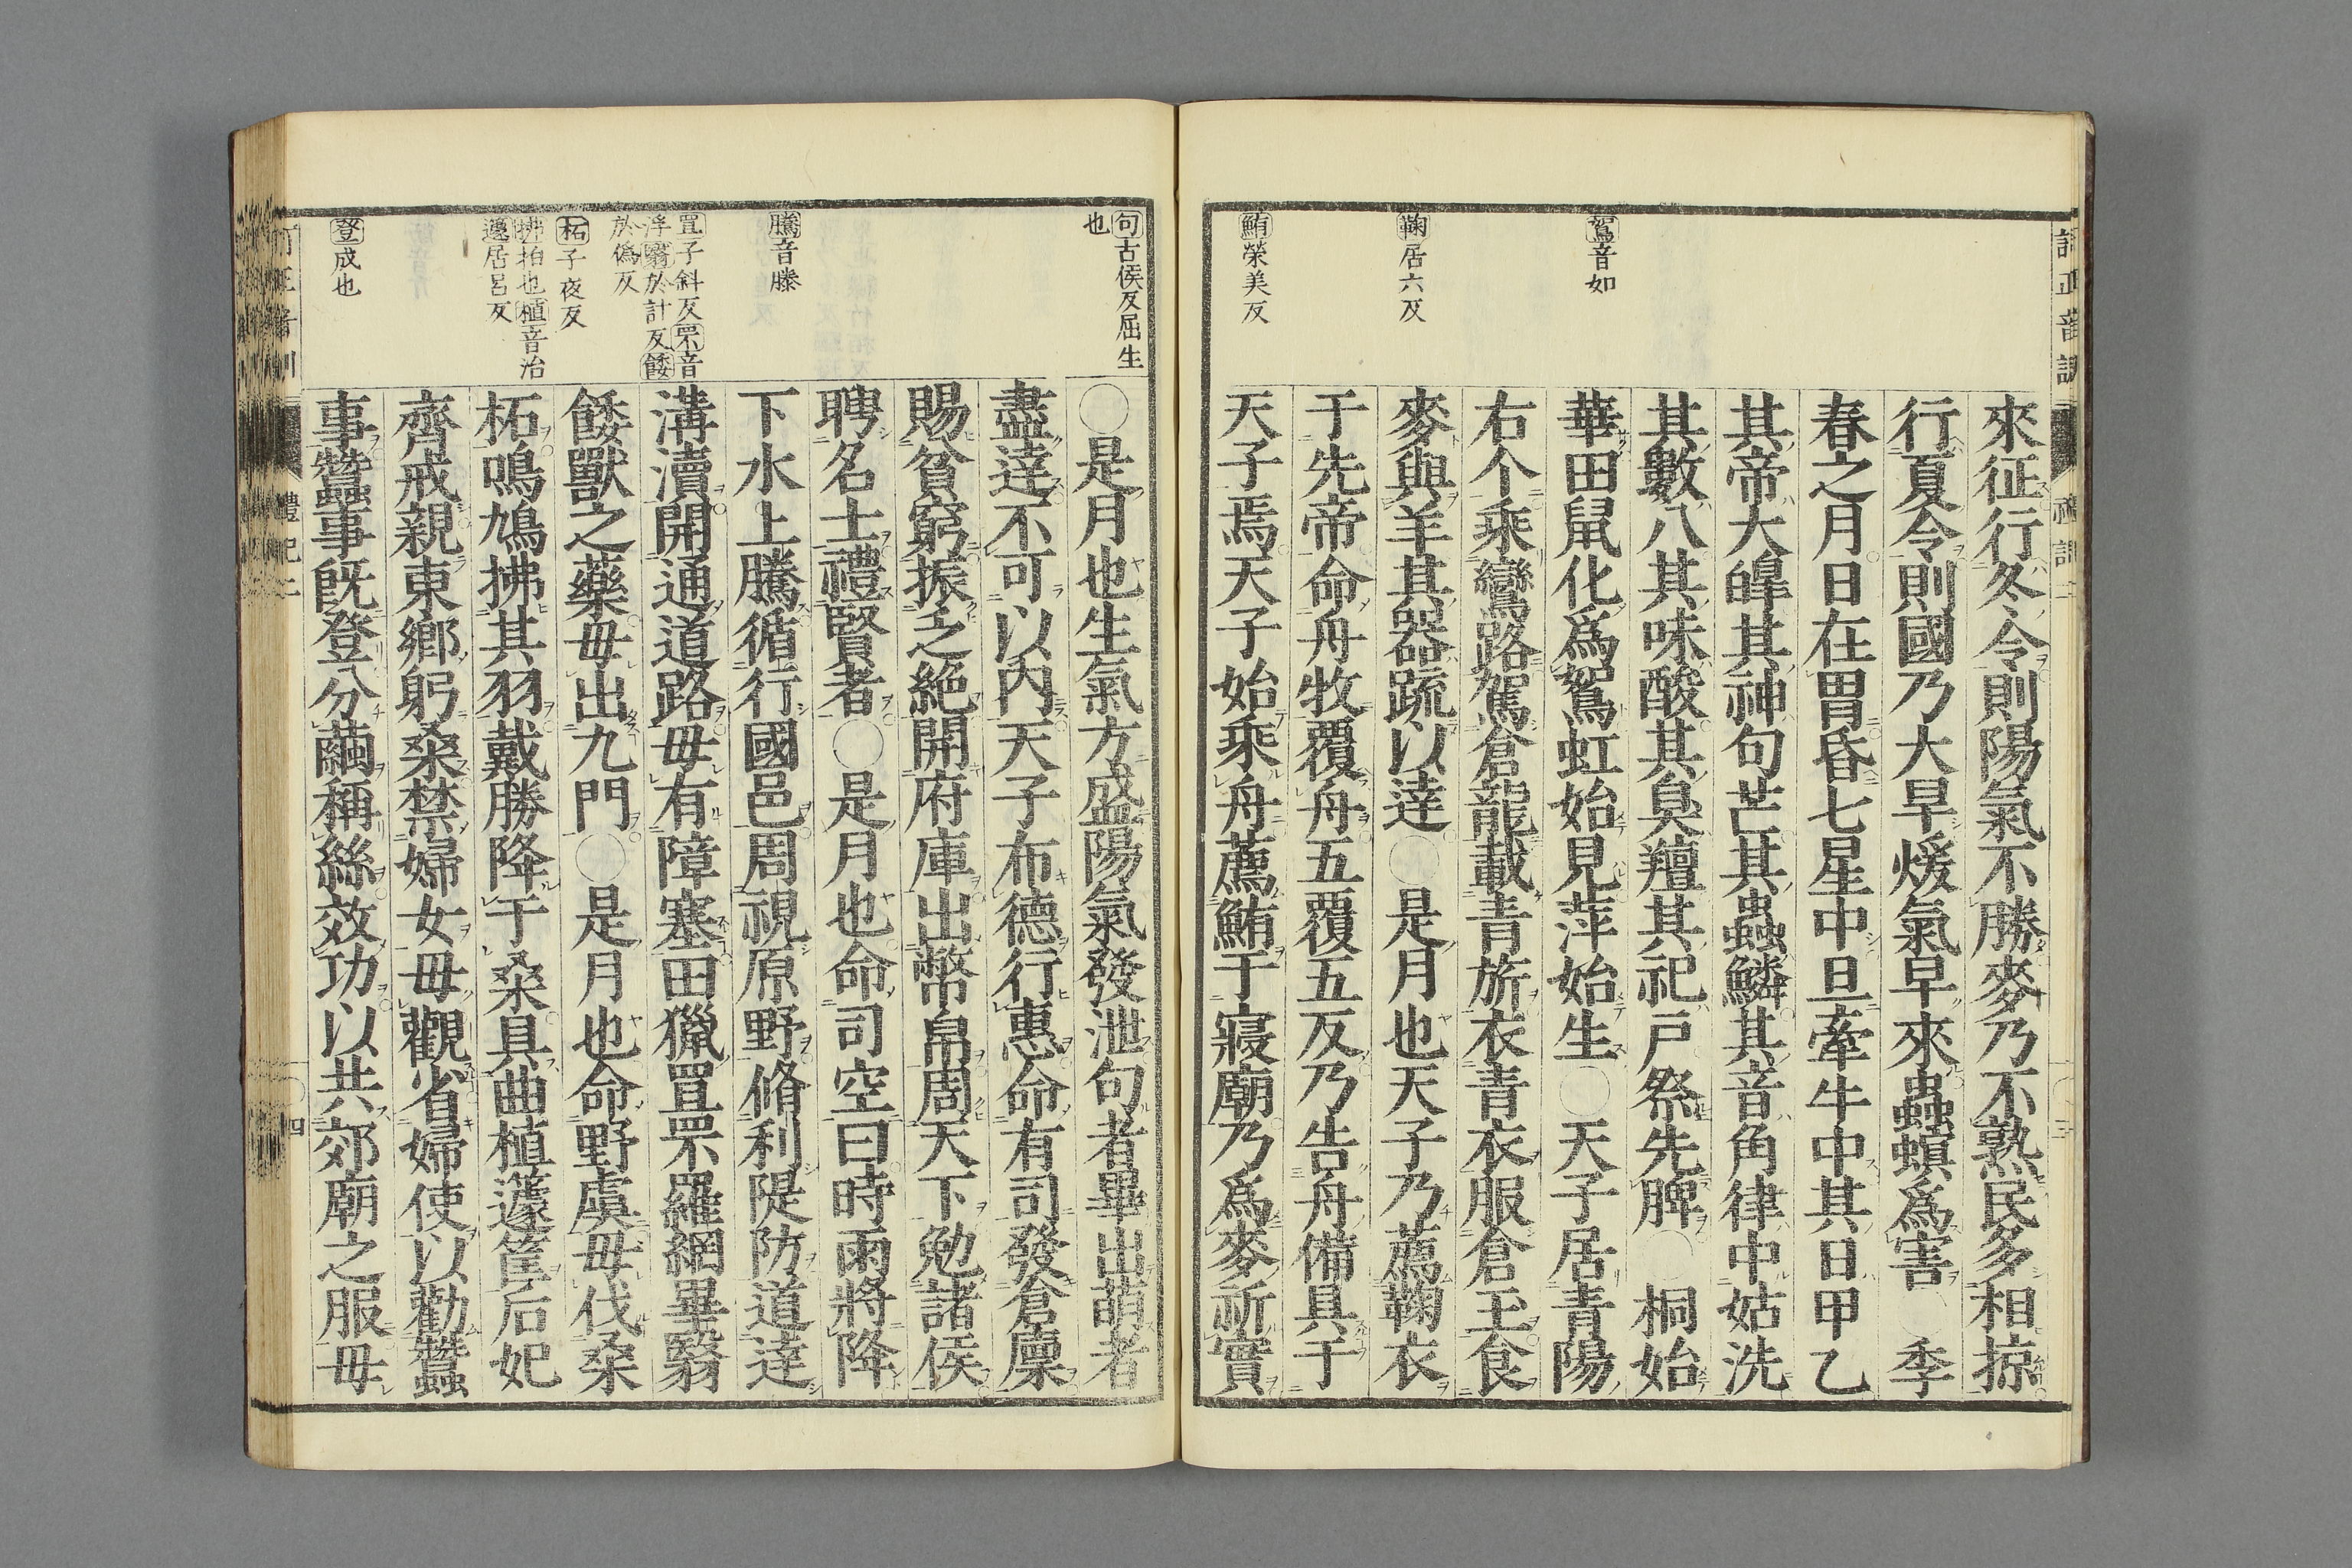 鴽音如
鞠居六反
鮪榮美反
來征行冬令則陽氣不勝麥乃不熟民多相掠
行夏令則國乃大旱煖氣早來蟲螟爲害○季
春之月日在胃昏七星中旦牽牛中其日甲乙
其帝大皡其神句芒其蟲鱗其音角律中姑洗
其數八其味酸其臭羶其祀戸祭先脾○桐始
華田鼠化爲鴽虹始見萍始生○天子居青陽
右个乘鸞路駕倉龍載青旂衣青衣服倉玉食
麥與羊其器疏以達○是月也天子乃薦鞠衣
于先帝命舟牧覆舟五覆五反乃告舟備具于
天子焉天子始乘舟薦鮪于寢廟乃爲麥祈實
句古侯反屈生
也
騰音滕
罝子斜反罘音
浮翳於計反餧
於僞反
柘子夜反
拂拍也植音治
籧居呂反
登成也
○是月也生氣方盛陽氣發泄句者畢出萌者
盡達不可以內天子布德行惠命有司發倉廩
賜貧窮振乏絕開府庫出幣帛周天下勉諸侯
聘名士禮賢者○是月也命司空曰時雨將降
下水上騰循行國邑周視原野脩利隄防道達
溝瀆開通道路毋有障塞田獵罝罘羅網畢翳
餧獸之藥毋出九門○是月也命野虞毋伐桑
柘鳴鳩拂其羽戴勝降于桑具曲植籧筐后妃
齊戒親東鄉躬桑禁婦女毋觀省婦使以勸蠶
事蠶事旣登分繭稱絲效功以共郊廟之服毋
禮記二
四